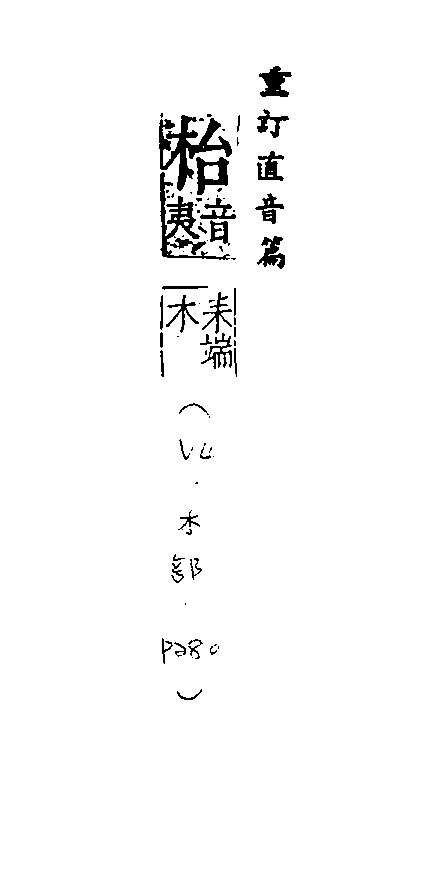 重訂直音篇
枱音夷耒端木
(V4.木部.P280)